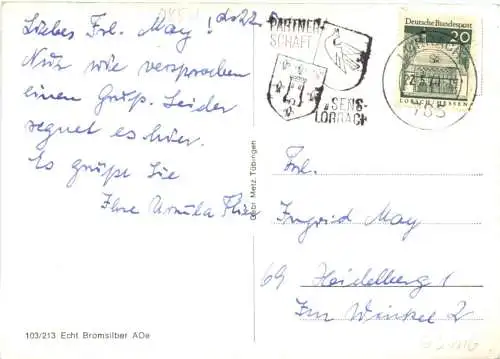 Liebes Frl. May! d. 22.
Nur wie versprochen
einen Gruß. Leider
regnet es hier.
Es grüßt Sie
Ihre Ursula
PARTNER-
SCHAFT
SENS-
LÖRRACH
Deutsche Bundespost
20
LORSCH/HESSEN
785
Gebr. Metz Tübingen
Frl.
Ingrid May
69 Heidelberg 1
Im Winkel 2
103/213 Echt Bromsilber ADe